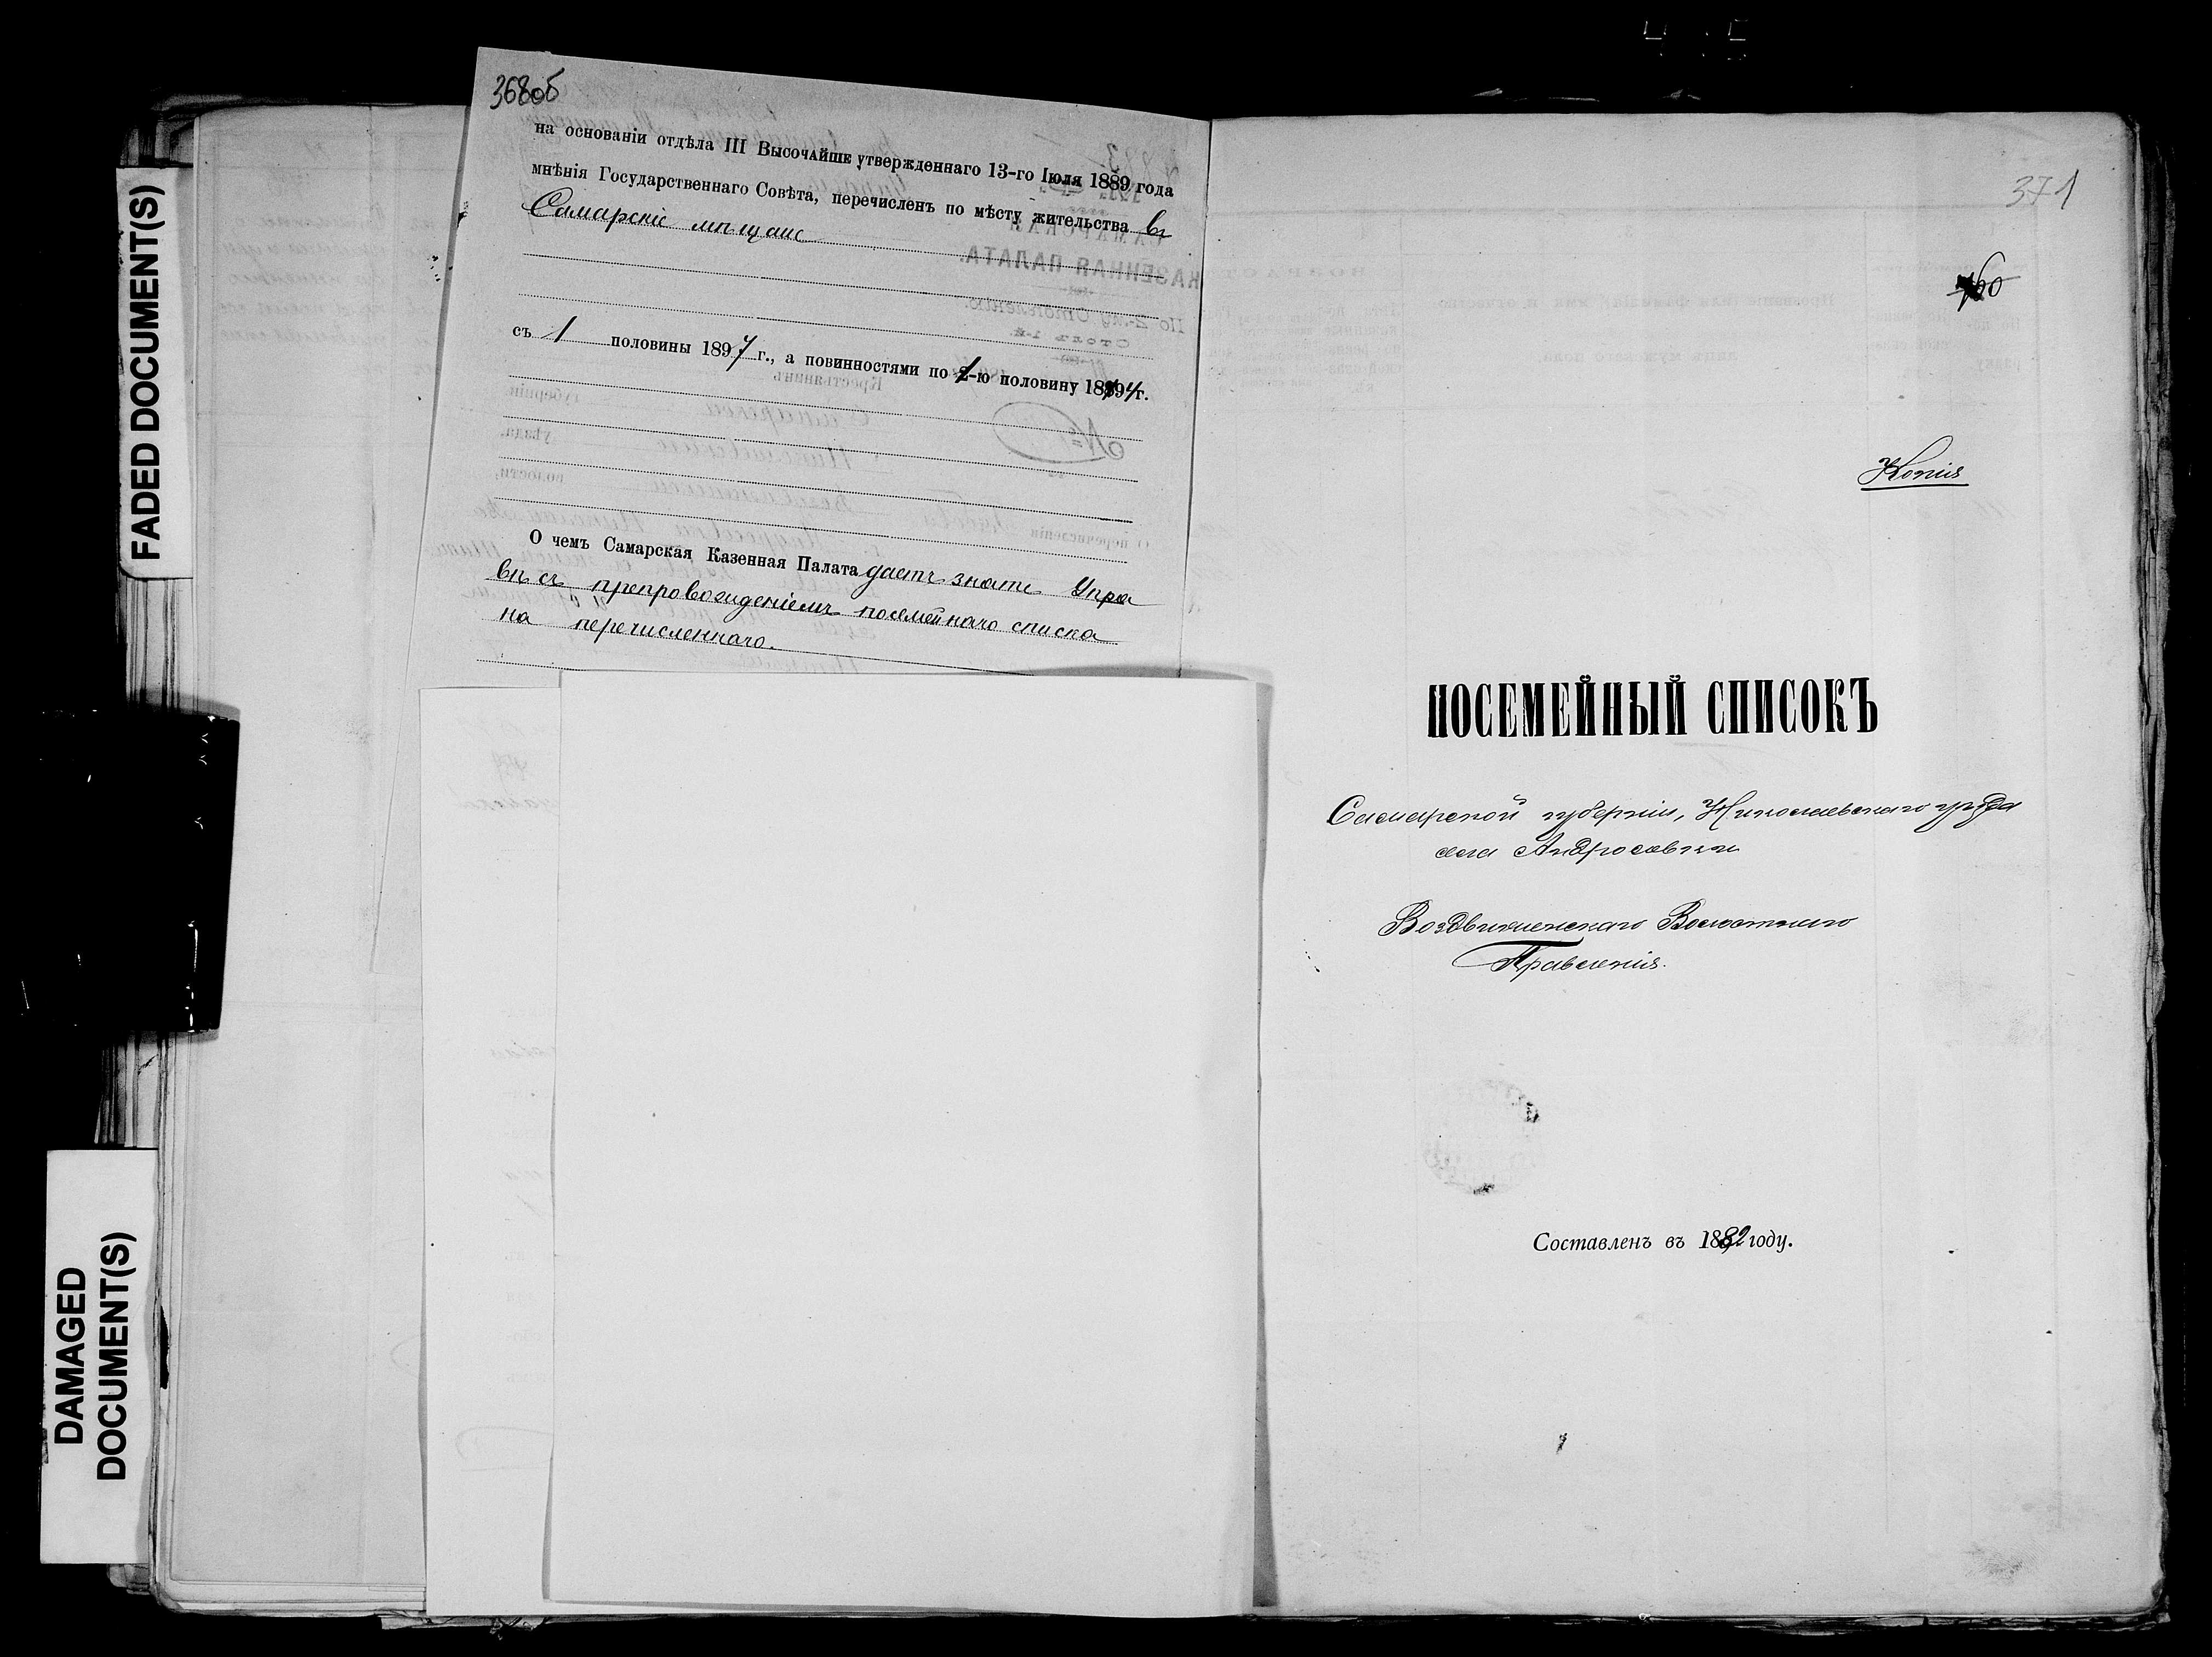 FADED DOCUMENT(S)
DAMAGED
DOCUMENT(S)
368об
на основаніи отдѣла III Высочайше утвержденнаго 13-го Іюля 1889 года
мнѣнія Государственнаго Совѣта, перечисленъ по мѣсту жительства въ
Самарскіе мѣщане
съ 1 половины 1897 г., а повинностями по 1-ю половину 1894 г.
О чемъ Самарская Казенная Палата даетъ знать Упра
вѣ съ препровожденіемъ посемейнаго списка
на перечисленнаго.
371
60
Копія
ПОСЕМЕЙНЫЙ СПИСОКЪ
Самарской губерніи, Николаевскаго уѣзда
села Андросовки
Воздвиженскаго Волостнаго
Правленія.
Составленъ въ 1882 году.